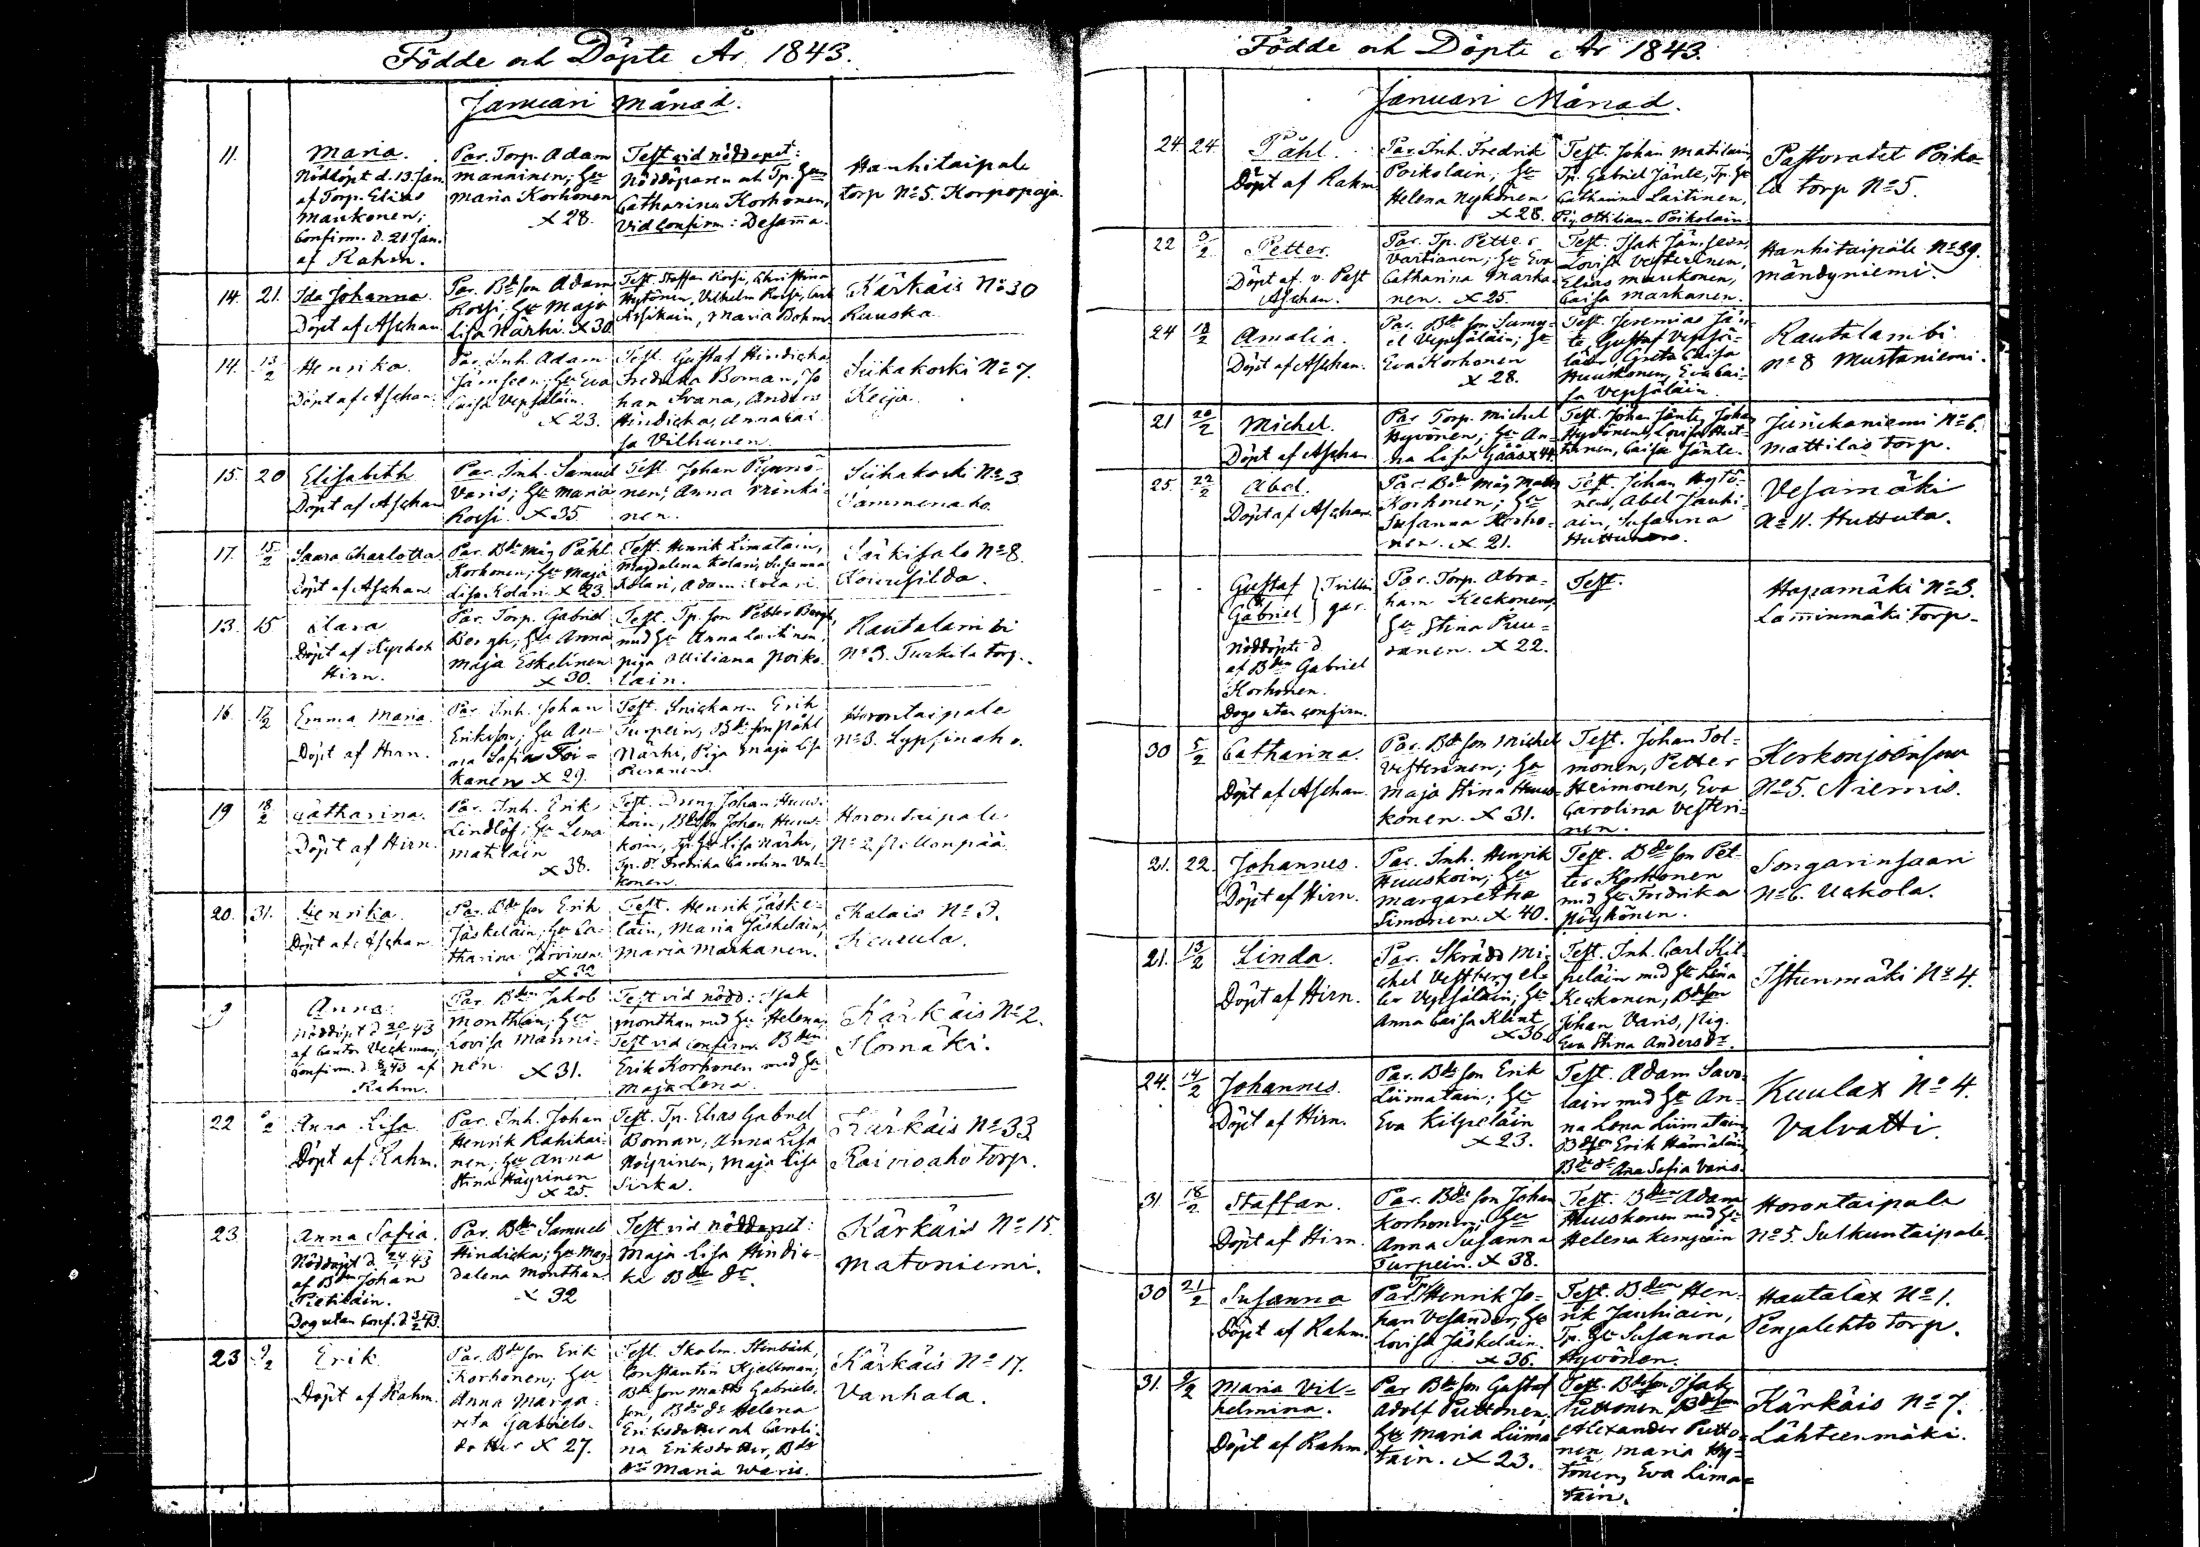 Födde och Döpte År 1843.
Januari Månad.
11.
Maria.
Nöddöpt d. 13 Jan.
af Torp. Elias
Markonen;
Confirm. d. 21 Jan.
af Rahm.
Par. Torp. Adam
Manninen; Hu
Maria Korhonen
x 28.
Test vid nöddopet:
Nöddöparen och Tp. Hu
Catharina Korhonen,
Vid Confirm: Desamma.
Hanhitaipale
torp No 5. Korpopaja.
14. 21.
Ida Johanna.
Döpt af Aschan.
Par. Bde son Adam
Rossi; Hu Maja
Lisa Närhi. x 30.
Test. Staffan Rossi, Christina
Hytönen, Vilhelm Rossi, Carl
Assikain, Maria Bohm.
Kärkäis No 30
Rauska.
14. 13/2
Henrika.
Döpt af Aschan.
Par. Inh. Adam
Jämseen; Hu Eva
Caisa Vepsäläin.
x 23.
Test. Gustaf Hindicka,
Fredrika Boman, Jo
han Ivana, Anders
Hindicka, Anna Cai
sa Vilhunen.
Siikakoski No 7.
Keija.
15. 20
Elisabeth
Döpt af Aschan
Par. Inh. Samuel
Varis; Hu Maria
Rossi. x 35.
Test. Johan Pynnö-
nen; Anna Minki-
nen.
Siikakoski No 3
Sammenaho.
17. 15/2
Saara Charlotta
Döpt af Aschan
Par. Bde måg Påhl
Korhonen; Hu Maja
Lisa Kolari. x 23
Test. Henrik Limatain,
Magdalena Kolari, Susanna
Kolari, Adam Kolari.
Särkisalo No 8.
Koivusilda.
13. 15
Clara
Döpt af Kyrkoh
Hirn.
Par. Torp. Gabriel
Bergh; Hu Anna
Maja Eskelinen
x 30.
Test. Tp. son Petter Bergh,
med Hu Anna Laitinen,
piga Ottiliana Poiko-
lain.
Rautalambi
No 3. Turkila torp.
16. 17/2
Emma Maria.
Döpt af Hirn.
Par. Inh. Johan
Eriksson; Hu An-
na Sofia Toi-
kanen x 29.
Test. Snickaren Erik
Turpein, Bde son Påhl
Närhi, Piga Maja Lisa
Puranen.
Horontaipale
No 3. Lypsinaho.
19 18/2
Catharina.
Döpt af Hirn.
Par. Inh. Erik
Lindlöf; Hu Lena
Matilain
x 38.
Test. Dreng Johan Huus-
koin, Bdeson Johan Huus-
koin, Tp. Hu Lisa Närhi,
Tp. Dr Fredrika Carolina Val-
konen.
Horontaipale
20. 31.
Henrika.
Döpt af Aschan
Par. Bde son Erik
Jäskeläin; Hu Ca-
tharina Järvinen.
x 32
Test. Henrik Jäske-
läin, Maria Jäskeläin,
Maria Markanen.
Kalais No 3.
Keurula.
9
Anna.
Nöddöpt d 20/1 43
af Cantor Veckman;
Confirm. d. 5/2 43 af
Rahm.
Par. Bden Jakob
Monthan; Hu
Lovisa Manni-
nen. x 31.
Test vid nödd: Isak
Monthan med Hu Helena;
Test vid confirm. Bden
Erik Korhonen med Hu
Maja Lena.
Kärkäis No 2.
Ilomäki.
22
Anna Lisa
Döpt af Rahm.
Par. Inh. Johan
Henrik Rahikai-
nen; Hu Anna
Stina Häyrinen
x 25.
Test. Tp. Elias Gabriel
Boman, Anna Lisa
Höyrinen, Maja Lisa
Sirka.
Kärkäis No 33
Raivioaho torp.
23
Anna Sofia.
Nöddöpt d. 24/1 43
af Bden Johan
Pietiläin.
Dog utan Conf. d 3/2 43.
Par. Bden Samuel
Hindicka; Hu Mag-
dalena Monthan.
x 32
Test vid Nöddopet:
Maja Lisa Hindic-
ka Bde dr.
Kärkäis No 15.
Matoniemi.
23 9/2
Erik.
Döpt af Rahm.
Par. Bde son Erik
Korhonen; Hu
Anna Marga-
reta Gabriels-
dotter x 27.
Test. Skolm. Stenbäck,
Constantin Kjellman,
Bde son Matts Gabriels-
son, Bde dr Helena
Eriksdotter och Caroli-
na Eriksdotter, Bde
dr Maria Waris.
Kärkäis No 17.
Vanhala.
Födde och Döpte År 1843.
Januari Månad.
24. 24.
Påhl.
Döpt af Rahm.
Par. Inh. Fredrik
Poikolain; Hu
Helena Nykänen
x 28.
Test. Johan Matilain,
Tp. Gabriel Jänte, Tp. Hu
Catharina Laitinen,
Pig. Ottiliana Poikolain.
Pastoradet Poiko-
la torp No 5.
22 3/2
Petter.
Döpt af v. Past
Aschan.
Par. Tp. Petter
Vartianen; Hu Eva
Catharina Marka-
nen. x 25.
Test. Isak Jämseen,
Lovisa Vesterinen,
Elias Markonen,
Caisa Markanen.
Hanhitaipale No 39.
Mändyniemi.
24 12/2
Amalia.
Döpt af Aschan.
Par. Bde son Samu-
el Vepsäläin; Hu
Eva Korhonen
x 28.
Test. Jeremias Jän-
te, Gustaf Vepsä-
läin Greta Caisa
Huuskonen, Eva Cai-
sa Vepsäläin.
Rautalambi
No 8 Mustaniemi.
21 20/2
Michel.
Döpt af Aschan
Par Torp. Michel
Hyvönen; Hu An-
na Lisa Gääs x 44.
Test. Johan Jänte, Johan
Hyvönen, Lovisa Hut-
tunen, Caisa Jänte.
Jurickaniemi No 6.
Mattilas torp.
25. 22/2
Abel.
Döpt af Aschan.
Par. Bde måg Mats
Korhonen; Hu
Susanna Korho-
nen. x 21.
Test. Johan Hytö-
nen, Abel Jauhi-
ain, Susanna
Huttunen.
Vesamäki
No 11. Huttula.
- -
Gustaf } Trillin
Gabriel } gar.
Nöddöpte d
af Bden Gabriel
Korhonen.
Dogo utan confirm.
Par. Torp. Abra-
ham Keckonen;
Hu Stina Puu-
ranen. x 22.
Test.
Hapamäki No 3.
Lamminmäki torp.
30 5/2
Catharina.
Döpt af Aschan.
Par. Bde son Michel
Vesterinen; Hu
Maja Stina Huus-
konen. x 31.
Test. Johan Tol-
monen, Petter
Heimonen, Eva
Carolina Vesteri-
nen.
Kerkonjoensuu
No 5. Niemis.
21. 22.
Johannes.
Döpt af Hirn.
Par. Inh. Henrik
Huuskoin; Hu
Margaretha
Simonen. x 40.
Test. Bde son Pet-
ter Korhonen
med Hu Fredrika
Pöyhönen.
Songarinsaari
No 6. Uckola.
21. 13/2
Linda.
Döpt af Hirn.
Par. Skrädd Mi-
chel Vestberg el-
ler Vepsäläin; Hu
Anna Caisa Klint
x 36.
Test. Inh. Carl Kil-
peläin med Hu Lena
Keckonen, Bdeson
Johan Varis, Pig.
Eva Stina Andersdr.
Istunmäki No 4.
24. 14/2
Johannes.
Döpt af Hirn.
Par. Bde son Erik
Liimatain; Hu
Eva Kilpeläin
x 23.
Test. Adam Savo-
lain med Hu An-
na Lena Liimatain,
Bdeson Erik Hämäläin,
Bde dr Ana Sofia Varis.
Kuulax No 4.
Valvatti.
31 18/2
Staffan.
Döpt af Hirn.
Par. Bde son Johan
Korhonen; Hu
Anna Susanna
Turpein. x 38.
Test. Bden Adam
Huuskonen med Hu
Helena Kempain
Horontaipale
No 5. Sulkuntaipale.
30 21/2
Susanna
Döpt af Rahm.
Par. Tp. Henrik Jo-
han Vesander; Hu
Lovisa Jäskeläin.
x 36.
Test. Bden Hen-
rik Jauhiain,
Tp. Hu Susanna
Hyvönen.
Hautalax No 1.
Pengalehto torp.
31. 9/2
Maria Vil-
helmina.
Döpt af Rahm.
Par Bde son Gustaf
Adolf Puttonen;
Hu Maria Liima-
tain. x 23.
Test. Bdeson Isak
Puttonen, Bdeson
Alexander Putto-
nen, Maria Hy-
tönen, Eva Lima-
tain.
Kärkäis No 7.
Lähteenmäki.